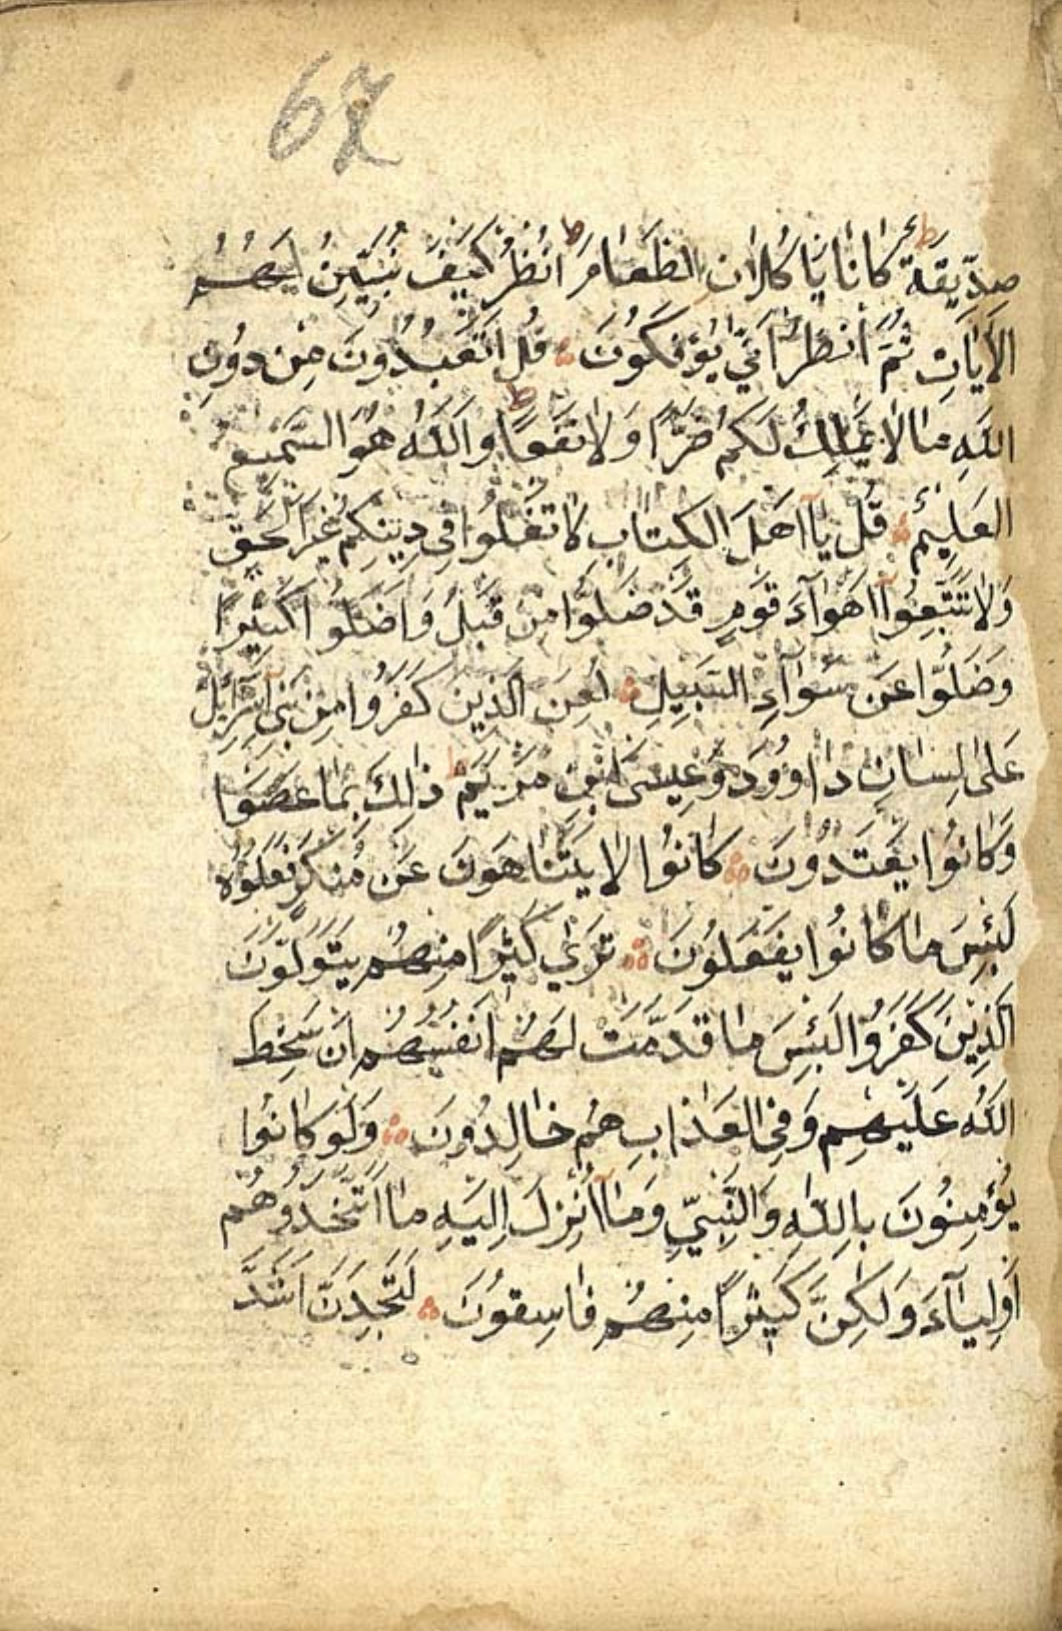 67
صِدِّيقَةٌ كَانَا يَأْكُلَانِ الطَّعَامَ اُنْظُرْ كَيْفَ نُبَيِّنُ لَهُمُ
الْاٰيَاتِ ثُمَّ انْظُرْ اَنّٰي يُؤْفَكُونَ قُلْ اَتَعْبُدُونَ مِنْ دُونِ
اللّٰهِ مَا لَا يَمْلِكُ لَكُمْ ضَرًّا وَلَا نَفْعًا وَاللّٰهُ هُوَ السَّمِيعُ
الْعَلِيمُ قُلْ يَآ اَهْلَ الْكِتَابِ لَا تَغْلُوا فِي دِينِكُمْ غَيْرَ الْحَقِّ
وَلَا تَتَّبِعُوآ اَهْوَآءَ قَوْمٍ قَدْ ضَلُّوا مِنْ قَبْلُ وَاَضَلُّوا كَثِيرًا
وَضَلُّوا عَنْ سَوَآءِ السَّبِيلِ لُعِنَ الَّذِينَ كَفَرُوا مِنْ بَنِي اِسْرَآئِلَ
عَلٰى لِسَانِ دَاوُودَ وَعِيسَى ابْنِ مَرْيَمَ ذٰلِكَ بِمَا عَصَوْا
وَكَانُوا يَعْتَدُونَ كَانُوا لَا يَتَنَاهَوْنَ عَنْ مُنْكَرٍ فَعَلُوهُ
لَبِئْسَ مَا كَانُوا يَفْعَلُونَ تَرٰي كَثِيرًا مِنْهُمْ يَتَوَلَّوْنَ
الَّذِينَ كَفَرُوا لَبِئْسَ مَا قَدَّمَتْ لَهُمْ اَنْفُسُهُمْ اَنْ سَخِطَ
اللّٰهُ عَلَيْهِمْ وَفِي الْعَذَابِ هُمْ خَالِدُونَ وَلَوْ كَانُوا
يُؤْمِنُونَ بِاللّٰهِ وَالنَّبِيِّ وَمَآ اُنْزِلَ اِلَيْهِ مَا اتَّخَذُوهُمْ
اَوْلِيَآءَ وَلٰكِنَّ كَثِيرًا مِنْهُمْ فَاسِقُونَ لَتَجِدَنَّ اَشَدَّ